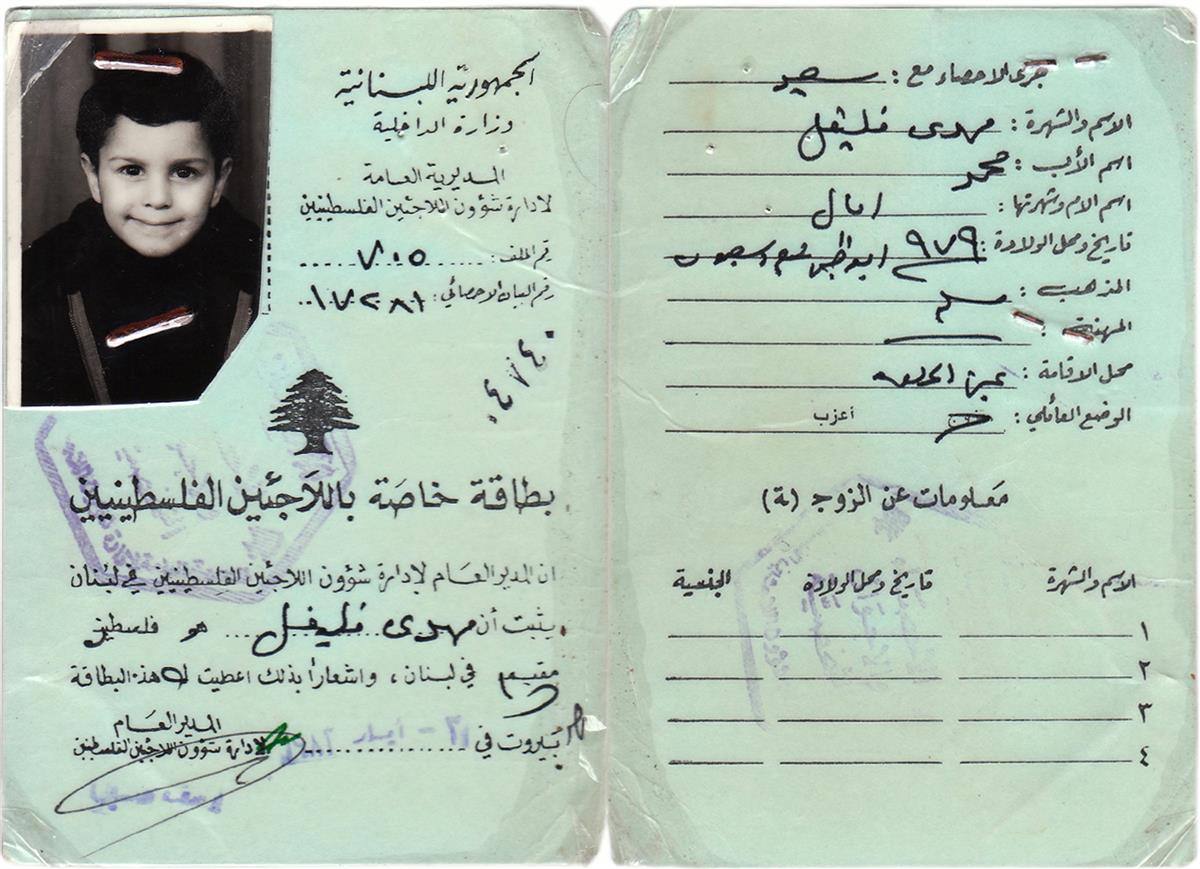 الجمهوريّة اللبنانية
وزارة الداخلية
المديرية العامة
لادارة شؤون اللاجئين الفلسطينيين
رقم الملف: ٧٠٥
رقم البيان الاحصائي: ١٧٢٨١
٠٤٧٤٠
بطاقة خاصة باللاجئين الفلسطينيين
ان المدير العام لإدارة شؤون اللاجئين الفلسطينيين في لبنان
يثبت أن مهدي فليفل هو فلسطيني
مقيم في لبنان، واشعاراً بذلك اعطيت له هذه البطاقة
بيروت في ٣ - أيار
المدير العام
لادارة شؤون اللاجئين الفلسطينيين
جرى الاحصاء مع: سعيد
الاسم والشهرة: مهدي فليفل
اسم الأب: محمد
اسم الام وشهرتها: امال
تاريخ ومحل الولادة: ٩٧٩ ابو ظبي
المذهب: مسلم
المهنة:
محل الاقامة: عين الحلوه
الوضع العائلي: أعزب
معلومات عن الزوج (ة)
الاسم والشهرة تاريخ ومحل الولادة الجنسية
١
٢
٣
٤